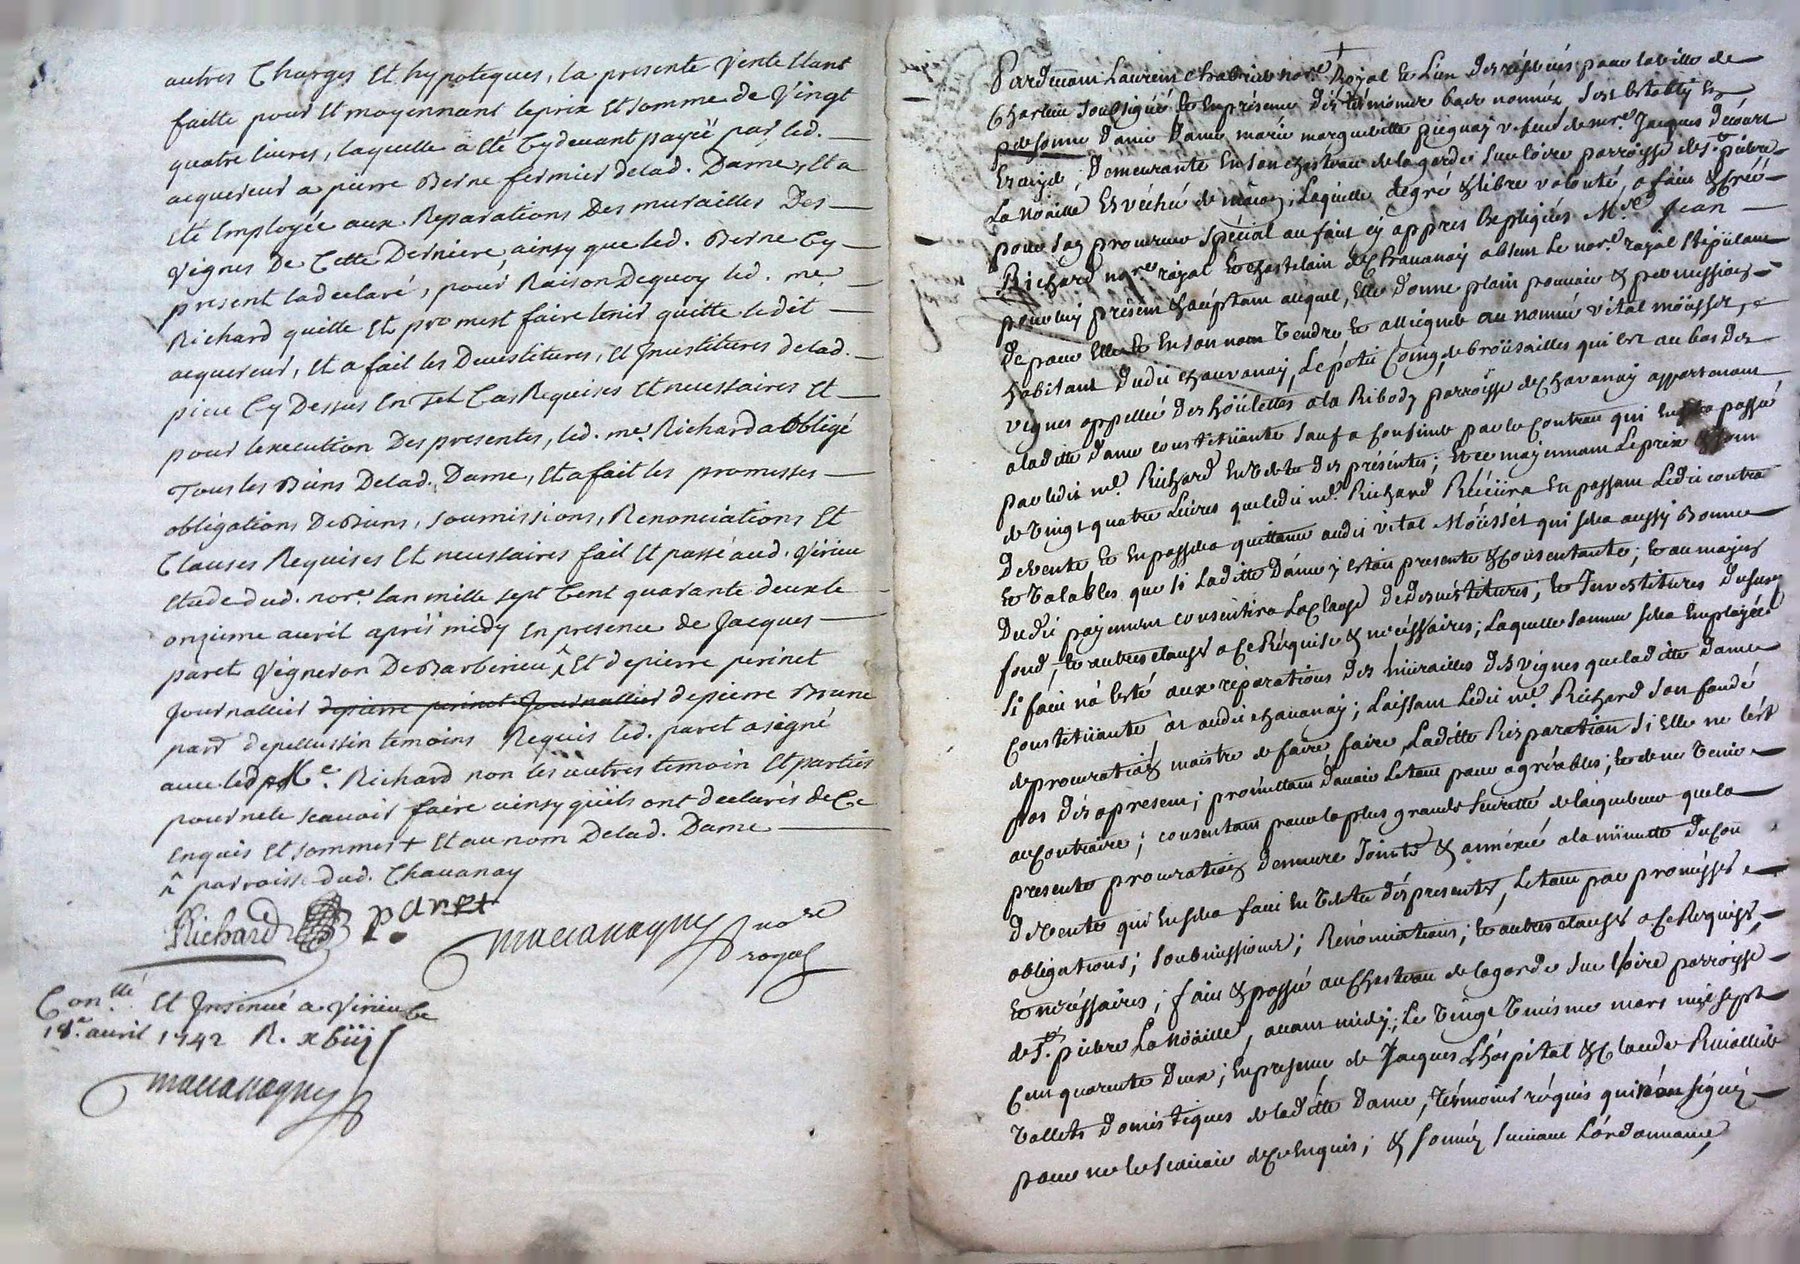 autres Charges Et hypoteques, la presente Vente Etant
faitte pour Et moyennant le prix Et somme de Vingt
quatre livres, laquelle a Eté Cydevant payëe par led.
acquereur a pierre Berne fermier delad. Dame, Et a
Eté Employée aux Reparations Des murailles Des
Vignes De Cette Derniere, ainsy que led. Berne Cy
present la declaré, pour Raison Dequoy led. me.
Richard quitte Et promest faire tenir quitte ledit
acquereur, Et a fait les Devestitures, Et Jnvestitures delad.
piece Cy Dessus En Tel Cas Requises Et necessaires Et
pour lexecution Des presentes, led. me. Richard a obligé
Tous les Biens Delad. Dame, Et a fait les promesses
obligations De Biens, soumissions, Renonciations Et
Clauses Requises Et necessaires fait Et passé aud. Virieu
Etude dud. nore. lan mille sept Cent quarante deux le
onzieme avril après midy En presence de Jacques
paret Vigneron De Barberieu ^ Et de pierre perinet
Journallier depierre perinet Journallier de pierre Brune
par depellussin temoins Requis led. paret a signé
avec led. Me. Richard non les autres temoin Et parties
pour ne le scavoir faire ainsy qu'ils ont declarés de Ce
Enquis Et sommes + Et au nom Delad. Dame
^ parroisse dud. Chavanay
Richard Paret
nore
royal
Conllé Et Jnsinué a Virieu Ce
18e. avril 1742 R. xbiij s
Pardevant Laurens Chabrier nore. Royal & L'un des reservés pour la ville de
Charlieu soubsigné & En présence des témoins bas nommés, sest Establi En
personne Dame Dame marie margueritte vefue de mre. Jacques
Demeurante En son château de la garde sur loire parroisse de st. pierre
La Nöaille Evéché de mâcon, Laquelle de gré & libre volonté, a fait & créé
pour son procureur spécial au fait cy appres Expliqués Me. Jean
Richard nore. royal & chastelain de Chavanay absent le nore. royal stipülant
pour luy présent & acceptant auquel, Elle donne plain pouvoir & permission
de pour Elle & En son nom Vendre & au nommé vital möusset,
habitant dudit chavanay, Le petit Coing de broüssailles qui est au bas des
vignes appellé des hoülettes a la Ribody parroisse de Chavanay appartenant
a laditte dame constituante sauf a par le Contrat qui En sera passé
par ledit me. Richard En Vertu des présentes; & ce moyennant Le prix & som
de vingt quatre Livres que ledit me. Richard Recevra En passant Ledit contra
De vente & En passera quittance audit vital Möussét qui sera aussy Bonne
& Valables que si Laditte Dame y Estoit presente & consentante; & au moyen
Dudit payement consentira La clause De Devestitures, & Investitures
fond, & autres clauses a ce Requise & nécéssaires; Laquelle somme sera Employée
si fait n'a Esté aux réparations des murailles des vignes que laditte Dame
Constitüante a audit chavanay; Laissant Ledit me. Richard son fondé
de procuration maistre de faire faire Laditte Réparation si Elle ne l'ést
pas dés apresent; promettant D'avoir Le tout pour agréables; & de ne venir
au Contraire; consentant pour la plus grande seurette de lacquereur que la
presente procuration demeure Jointe & annéxée a la minutte du Con
De vente qui En sera fait En Vertu des presentes, Le tout par promésses
obligations; soubmissions; Renonciations; & autres clauses a ce Requises
& nécéssaires; fait & passé au Chasteau de la garde sur Loire parroisse
de st. pierre La Nöaille, avant midy; Le vingt Troisieme mars mil sept
Cent quarente Deux; En presence de Jacques L'hôspital & Claude
Vallets domestiques de laditte Dame, témoins réquis qui n'ont signéz
pour ne le scavoir de ce Enquis; & sommés suivant L'ordonnance,